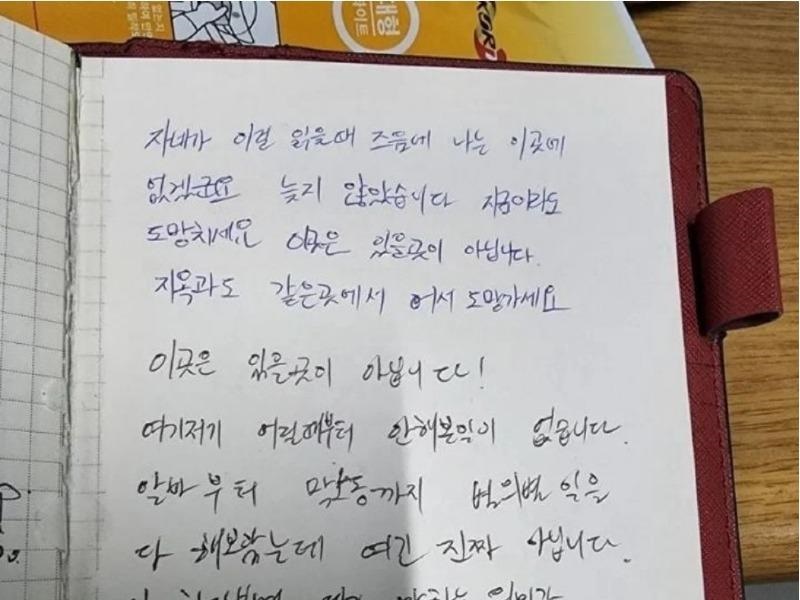 대형
이트
KORD
자네가 이걸 읽을때 즈음에 나는 이곳에
없겠군요 늦지 않았습니다 지금이라도
도망치세요 이곳은 있을곳이 아닙니다.
지옥과도 같은곳에서 어서 도망가세요
이곳은 있을곳이 아닙니다!
여기저기 어릴때부터 안해본일이 없습니다.
알바부터 막노동까지 별의별 일을
다 해보았는데 여긴 진짜 아닙니다.